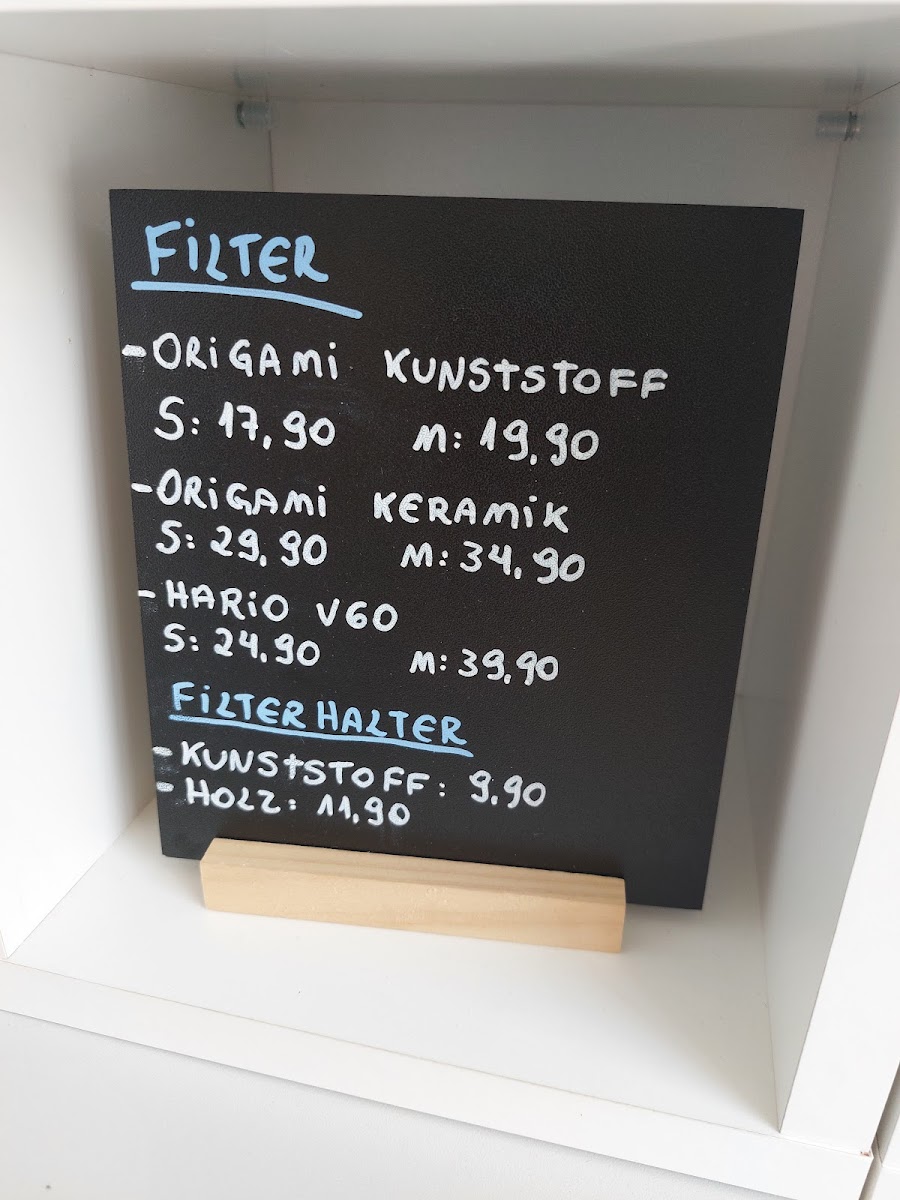 FILTER
- ORIGAMI KUNSTSTOFF
S: 17,90 M: 19,90
- ORIGAMI KERAMIK
S: 29,90 M: 34,90
- HARIO V60
S: 24,90 M: 39,90
FILTERHALTER
- KUNSTSTOFF: 9,90
- HOLZ: 11,90